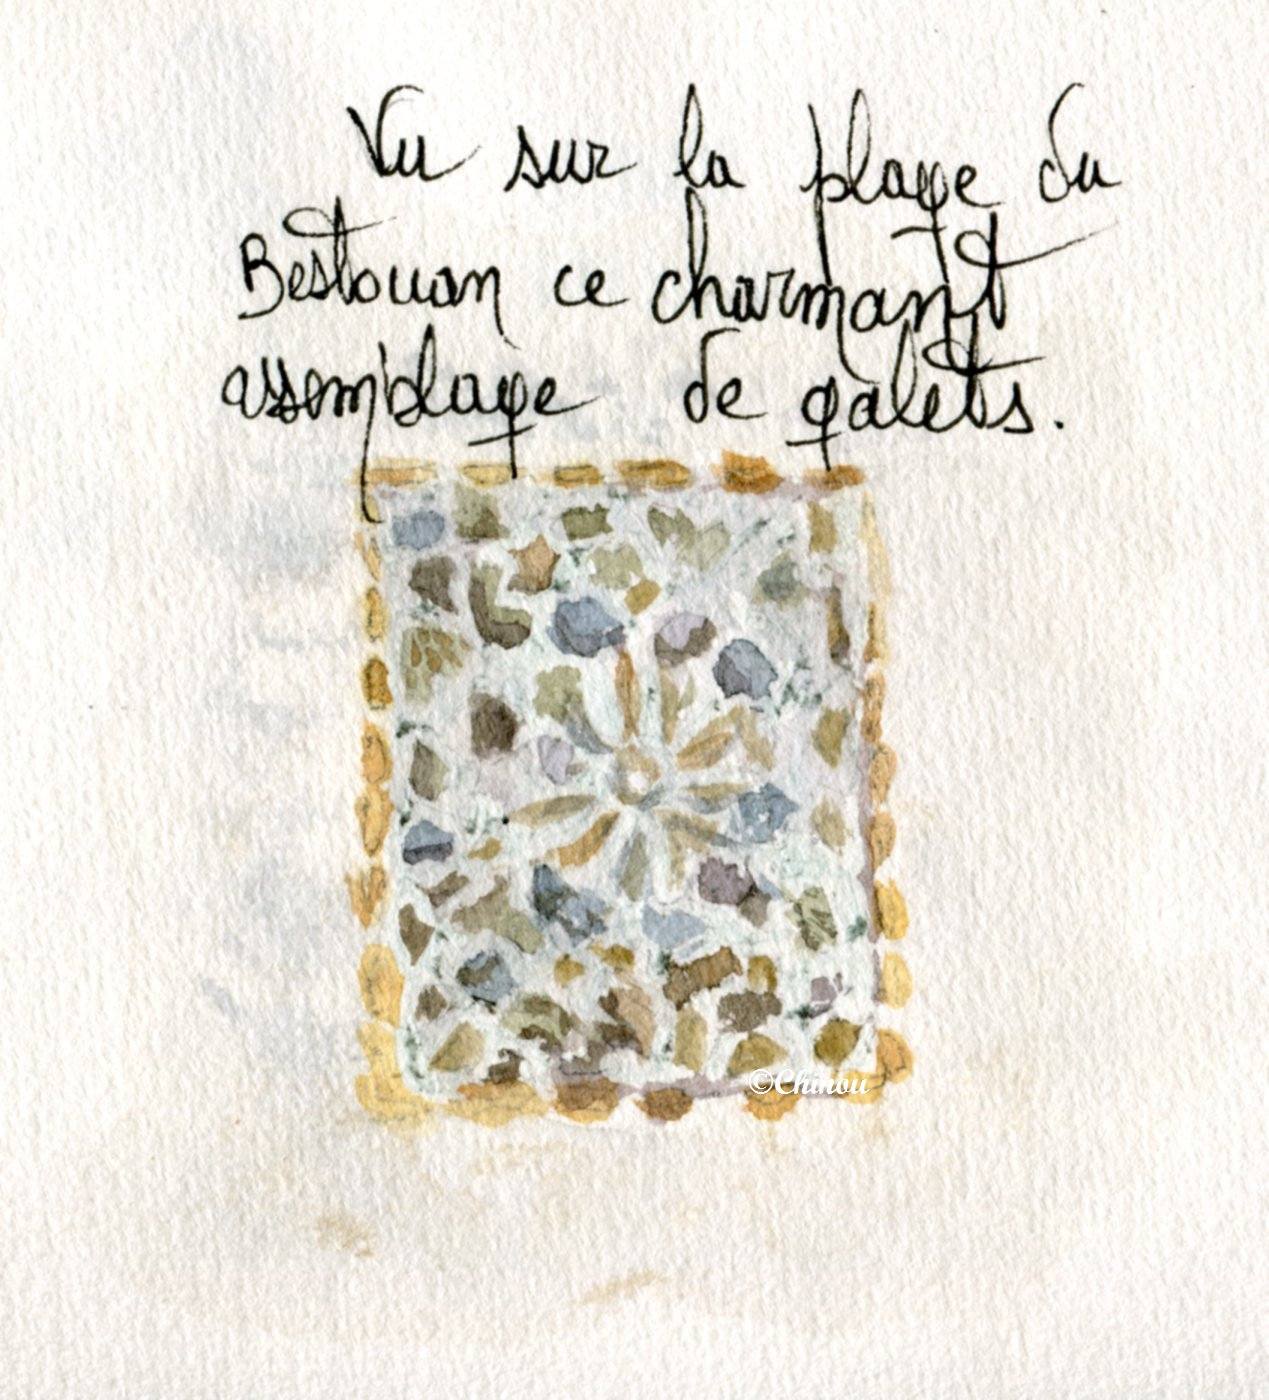 Vu sur la plage du
Bestouan ce charmant
assemblage de galets.
©Chinou